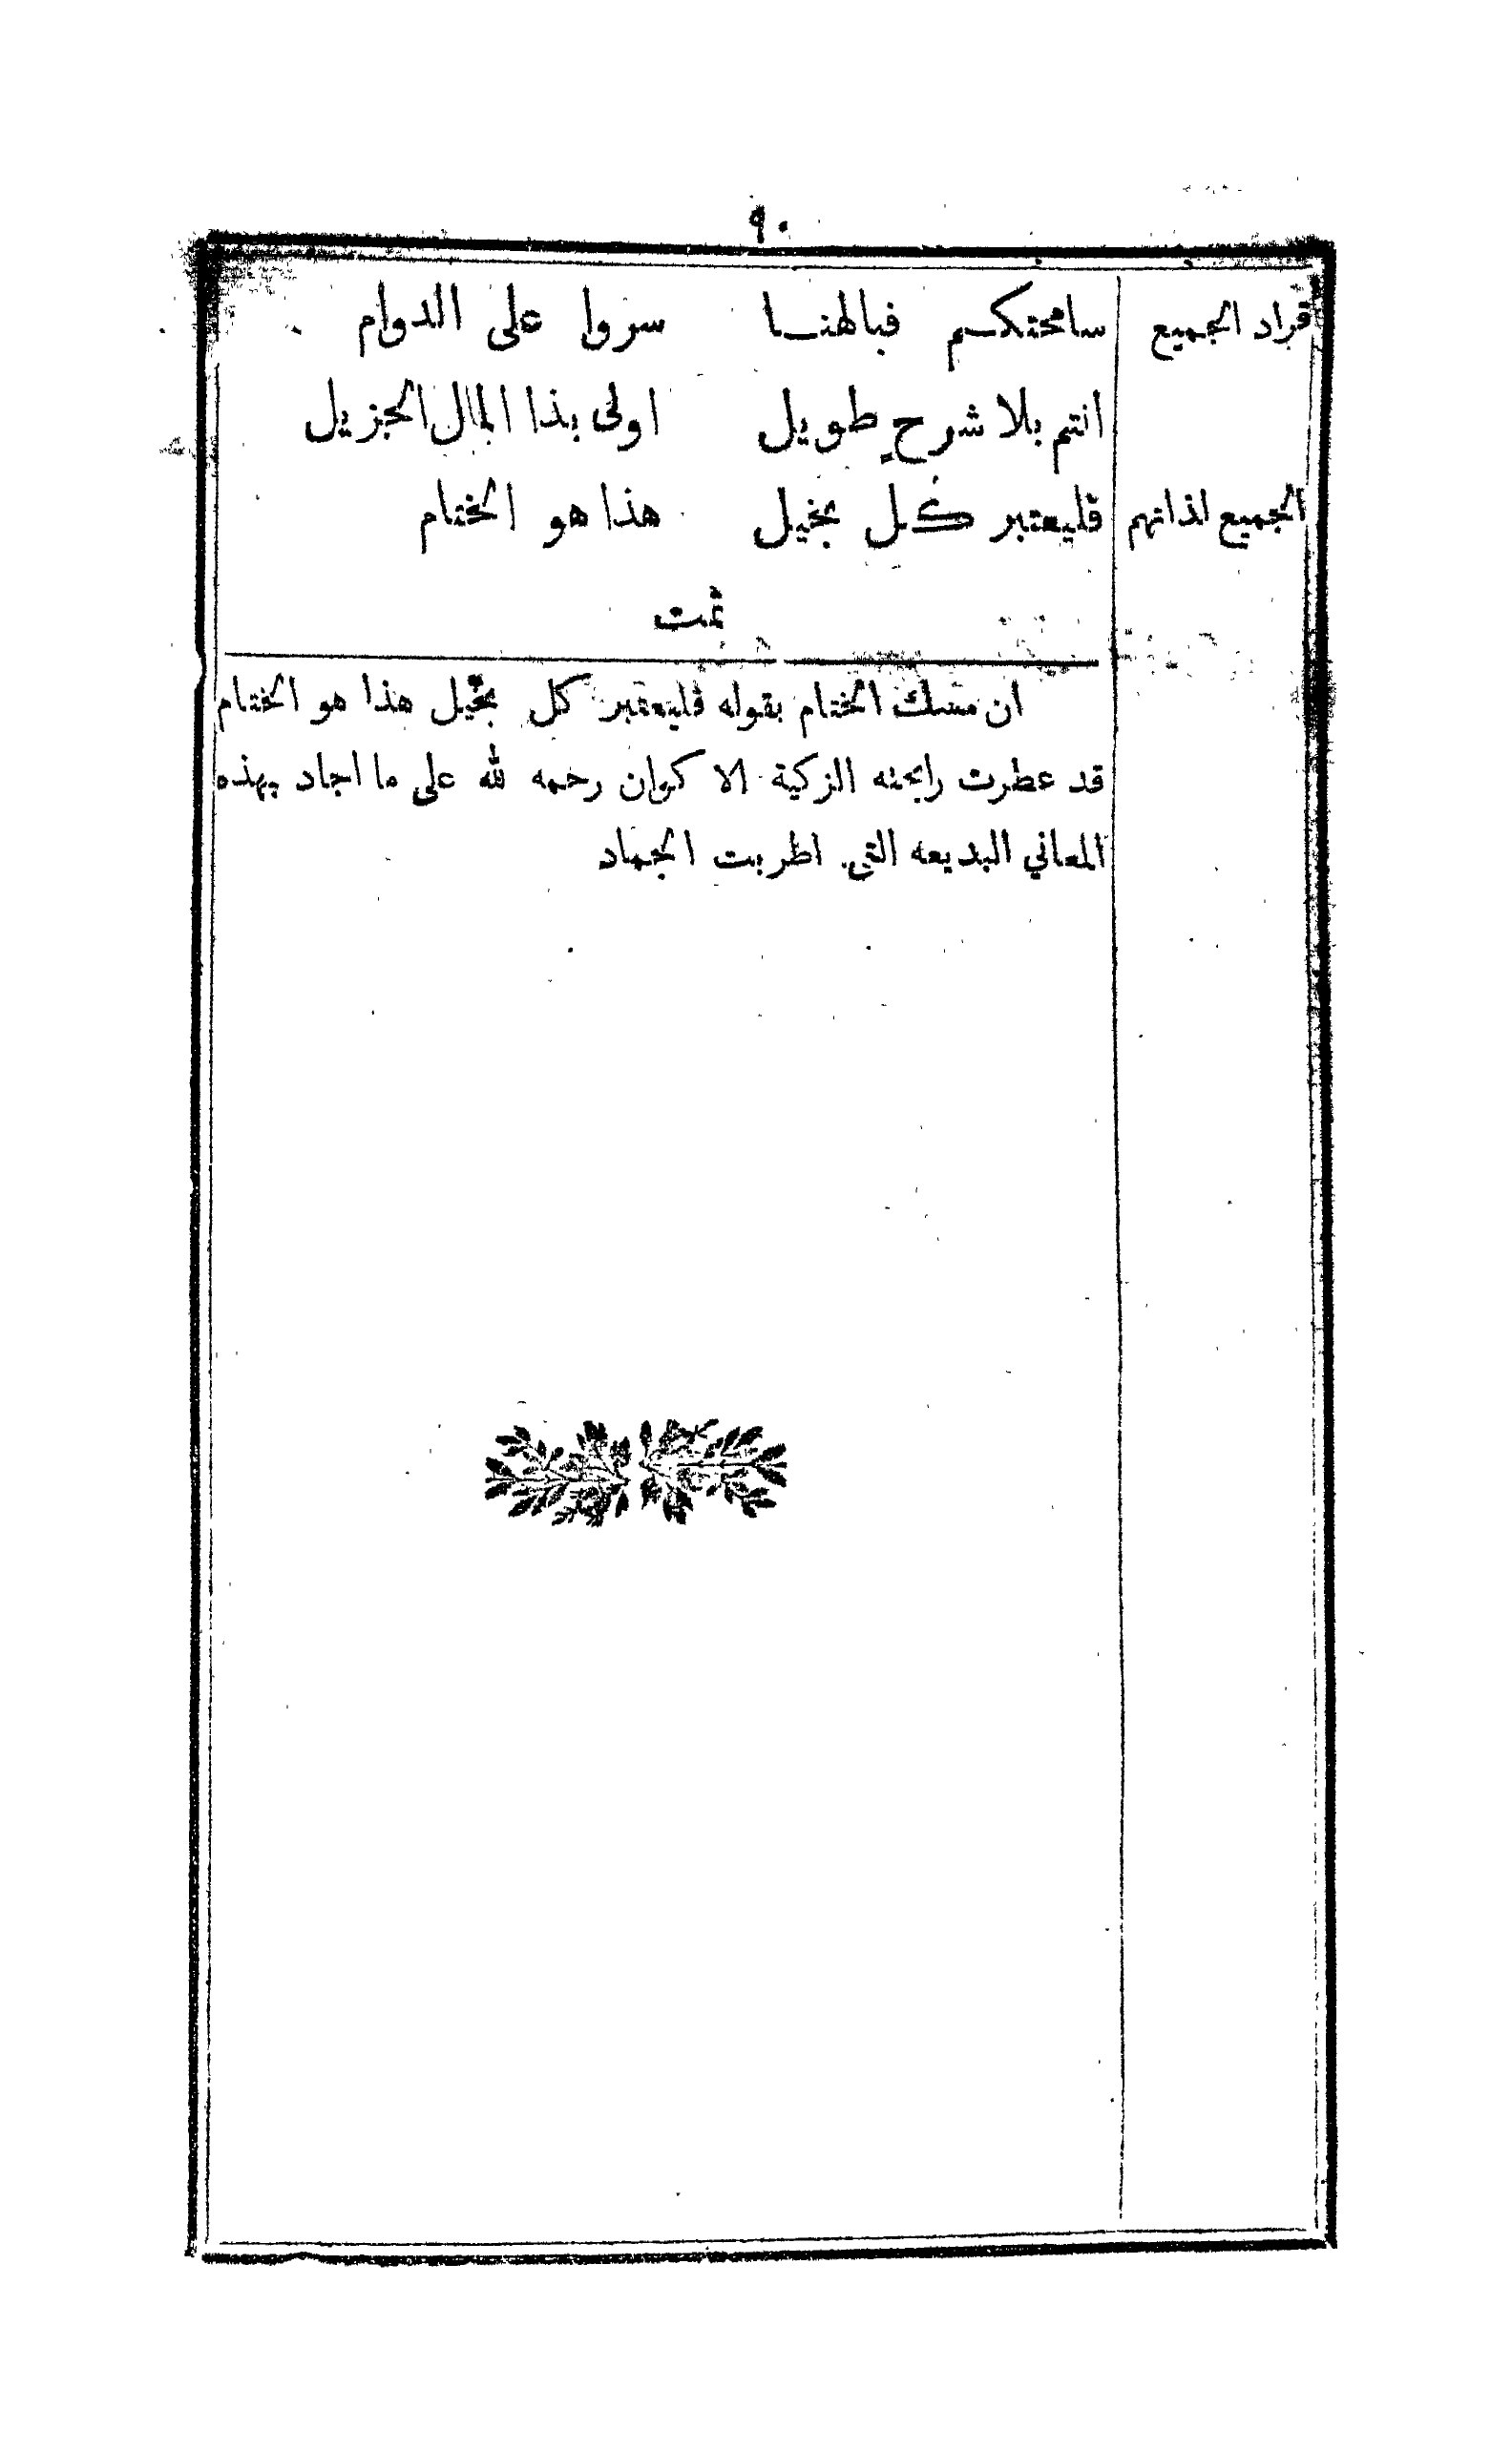 ٩٠
قراد الجميع سامحتكم فبالهنا سروا على الدوام
انتم بلا شرحٍ طويل اولى بذا المال الجزيل
الجميع لذاتهم فليعتبر كل بخيل هذا هو الختام
تمت
ان مسك الختام بقوله فليعتبر كل بخيل هذا هو الختام
قد عطرت رايحته الزكية الاكوان رحمه لله على ما اجاد بهذه
المعاني البديعه التي اطربت الجماد